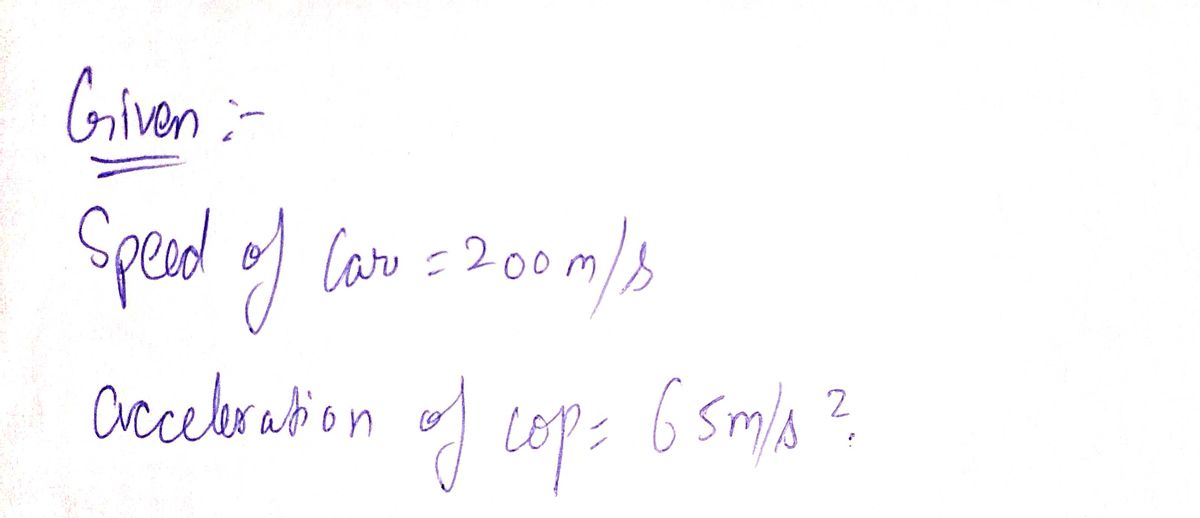 Given :-
Speed of Car = 200 m/s
acceleration of cop = 65m/s².